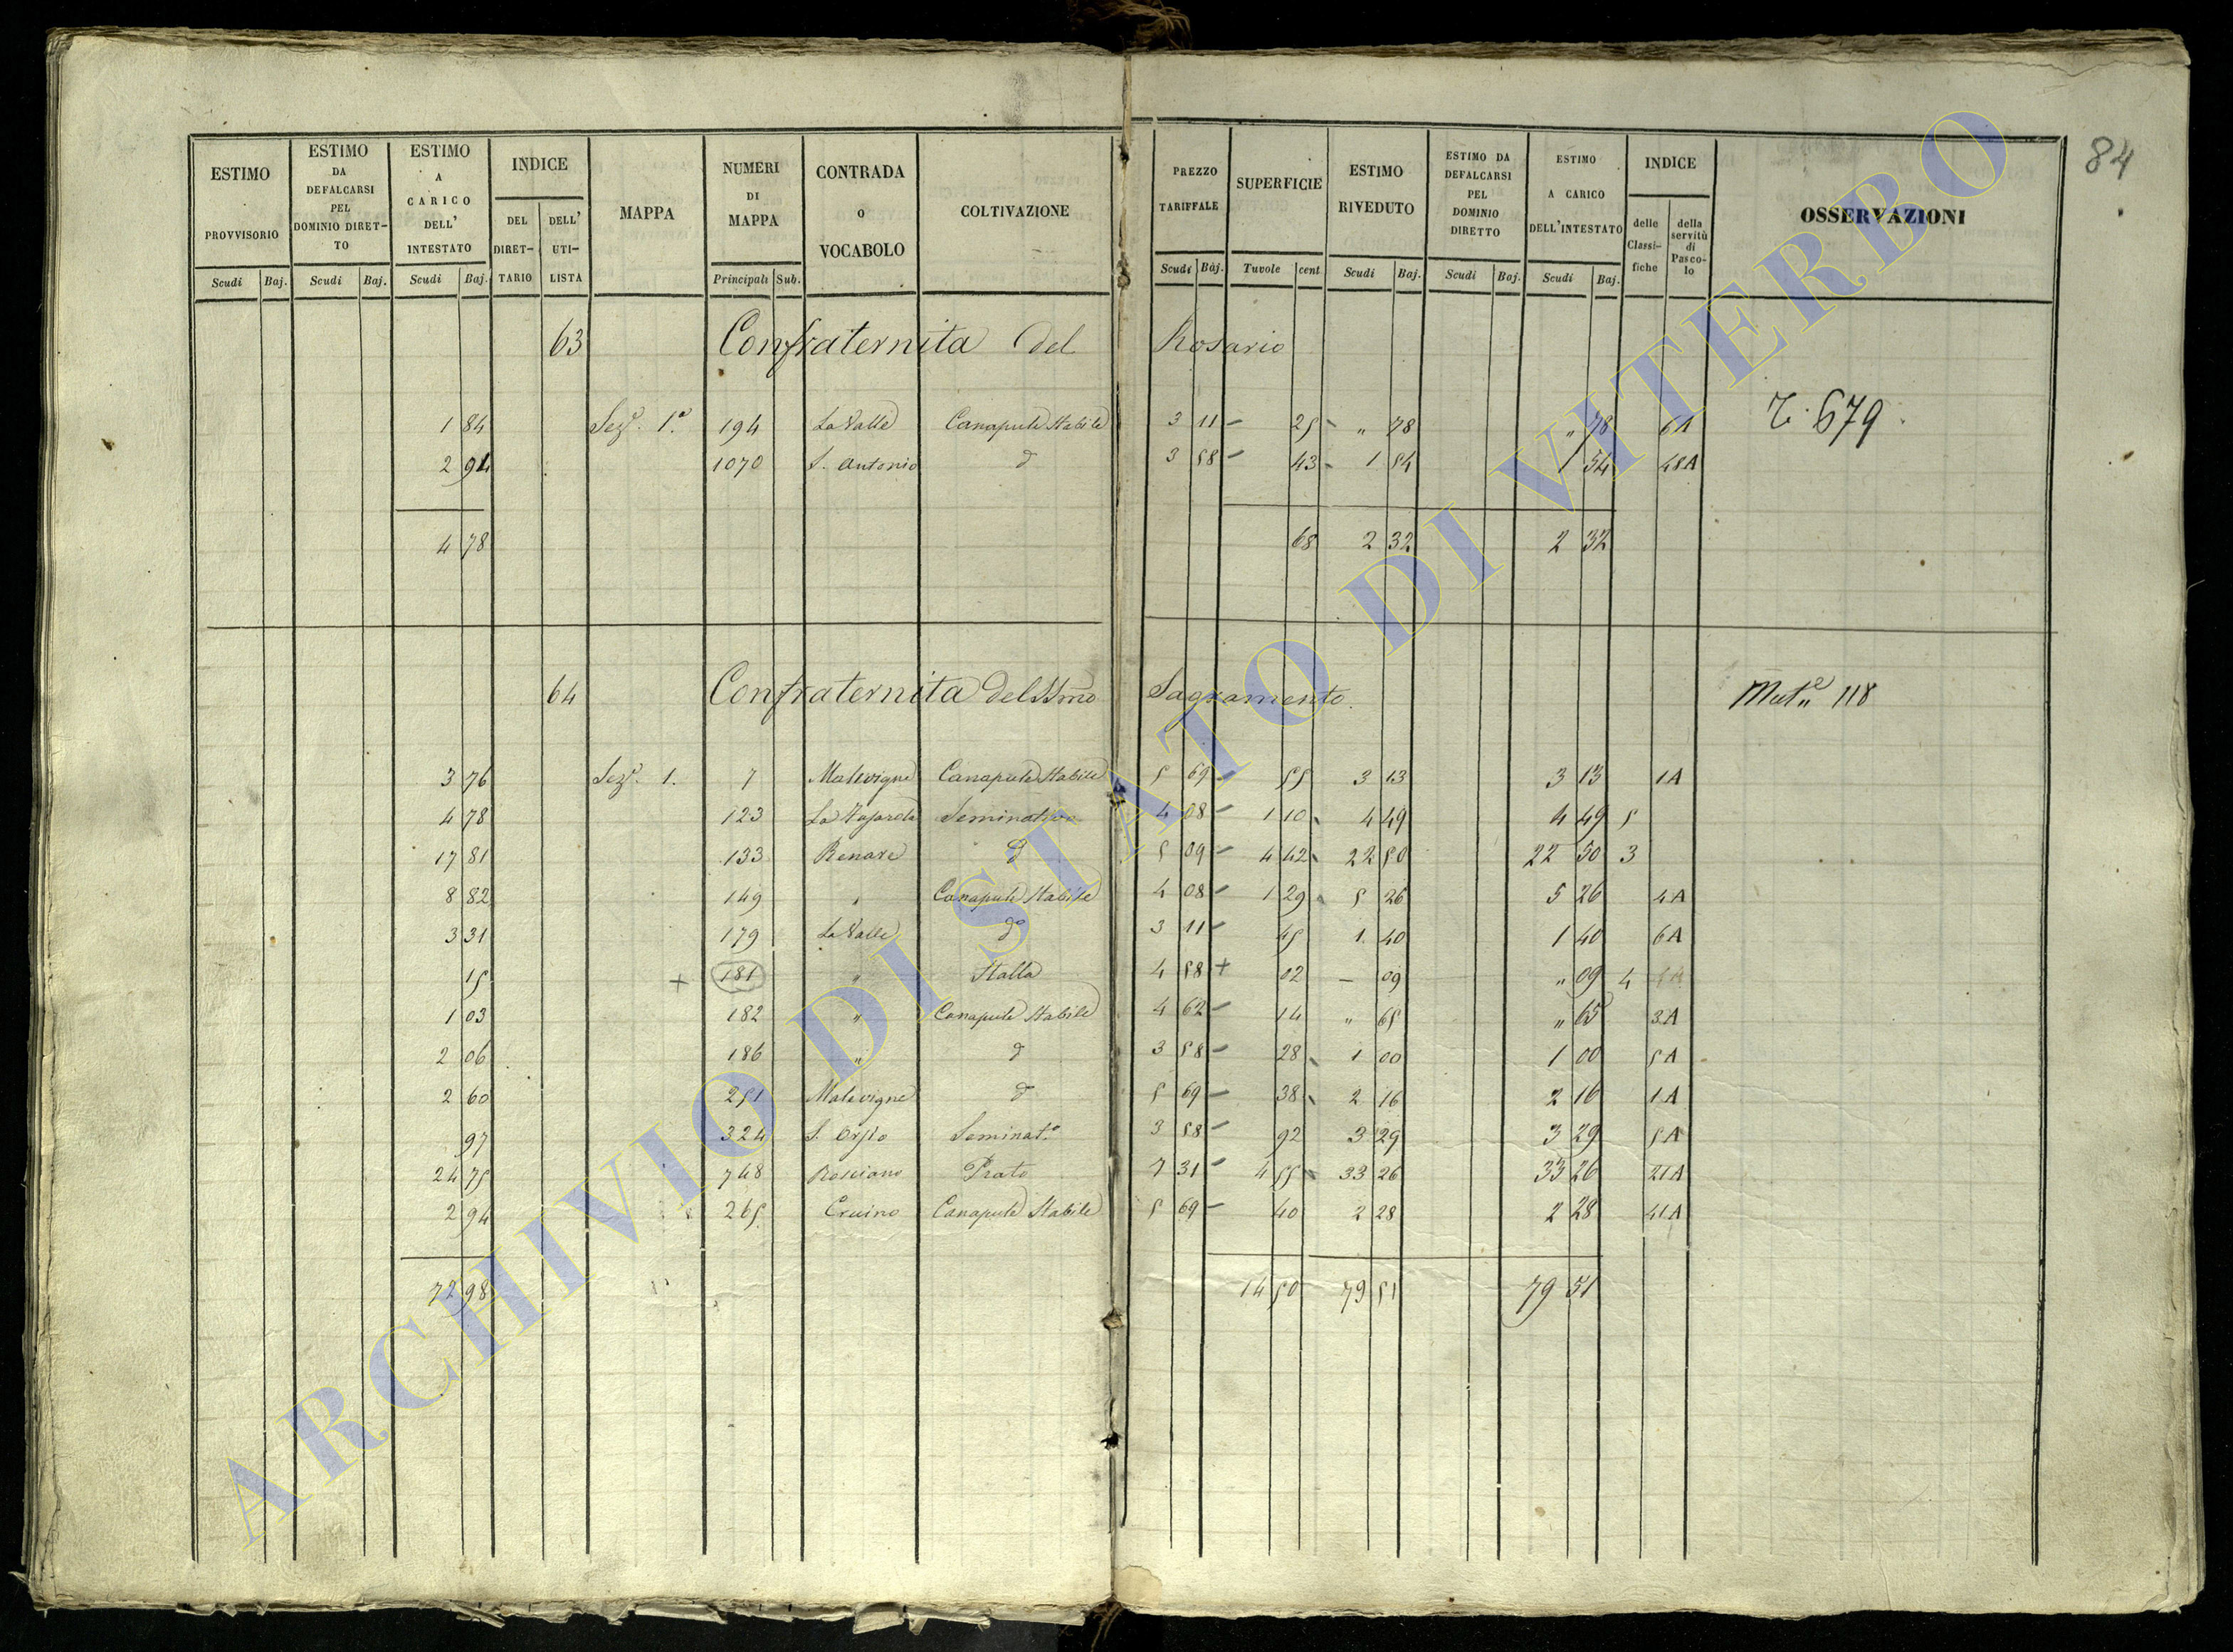 84
ESTIMO PROVVISORIO Scudi Baj.
ESTIMO DA DEFALCARSI PEL DOMINIO DIRETTO Scudi Baj.
ESTIMO A CARICO DELL' INTESTATO Scudi Baj.
INDICE DEL DIRETTARIO DELL' UTILISTA
MAPPA
NUMERI DI MAPPA Principali Sub.
CONTRADA O VOCABOLO
COLTIVAZIONE
PREZZO TARIFFALE Scudi Baj.
SUPERFICIE Tavole cent
ESTIMO RIVEDUTO Scudi Baj.
ESTIMO DA DEFALCARSI PEL DOMINIO DIRETTO Scudi Baj.
ESTIMO A CARICO DELL'INTESTATO Scudi Baj.
INDICE delle Classifiche della servitù di Pascolo
OSSERVAZIONI
63 Confraternita del Rosario
1 84 Sez.e 1.a 194 La Valle Canapule Stabile 3 11 - 25 - " 78 " 78 6A T. 679.
2 94 1070 S. Antonio d 3 58 - 43 - 1 54 1 54 48A
4 78 68 2 32 2 32
64 Confraternita del SSmo Sagramento. Mut.e 118
3 76 Sez.e 1. 7 Malevigne Canapule Stabile 5 69 - 55 3 13 3 13 1A
4 78 123 Seminativo 4 08 - 1 10 4 49 4 49 5
17 81 133 Renare d 5 09 - 4 42 22 50 22 50 3
8 82 149 " Canapule Stabile 4 08 - 1 29 5 26 5 26 4A
3 31 179 La Valle do 3 11 - 45 1 40 1 40 6A
15 + 181 " Stalla 4 58 + 02 - 09 " 09 4
1 03 182 " Canapule Stabile 4 62 - 14 " 65 " 65 3A
2 06 186 " d 3 58 - 28 1 00 1 00 5A
2 60 251 Malevigne d 5 69 - 38 2 16 2 16 1A
97 324 Seminat.o 3 58 - 92 3 29 3 29 5A
24 75 748 Rosciano Prato 7 31 - 4 55 33 26 33 26 21A
2 94 265 Canapule Stabile 5 69 - 40 2 28 2 28 41A
72 98 14 50 79 51 79 51
ARCHIVIO DI STATO DI VITERBO